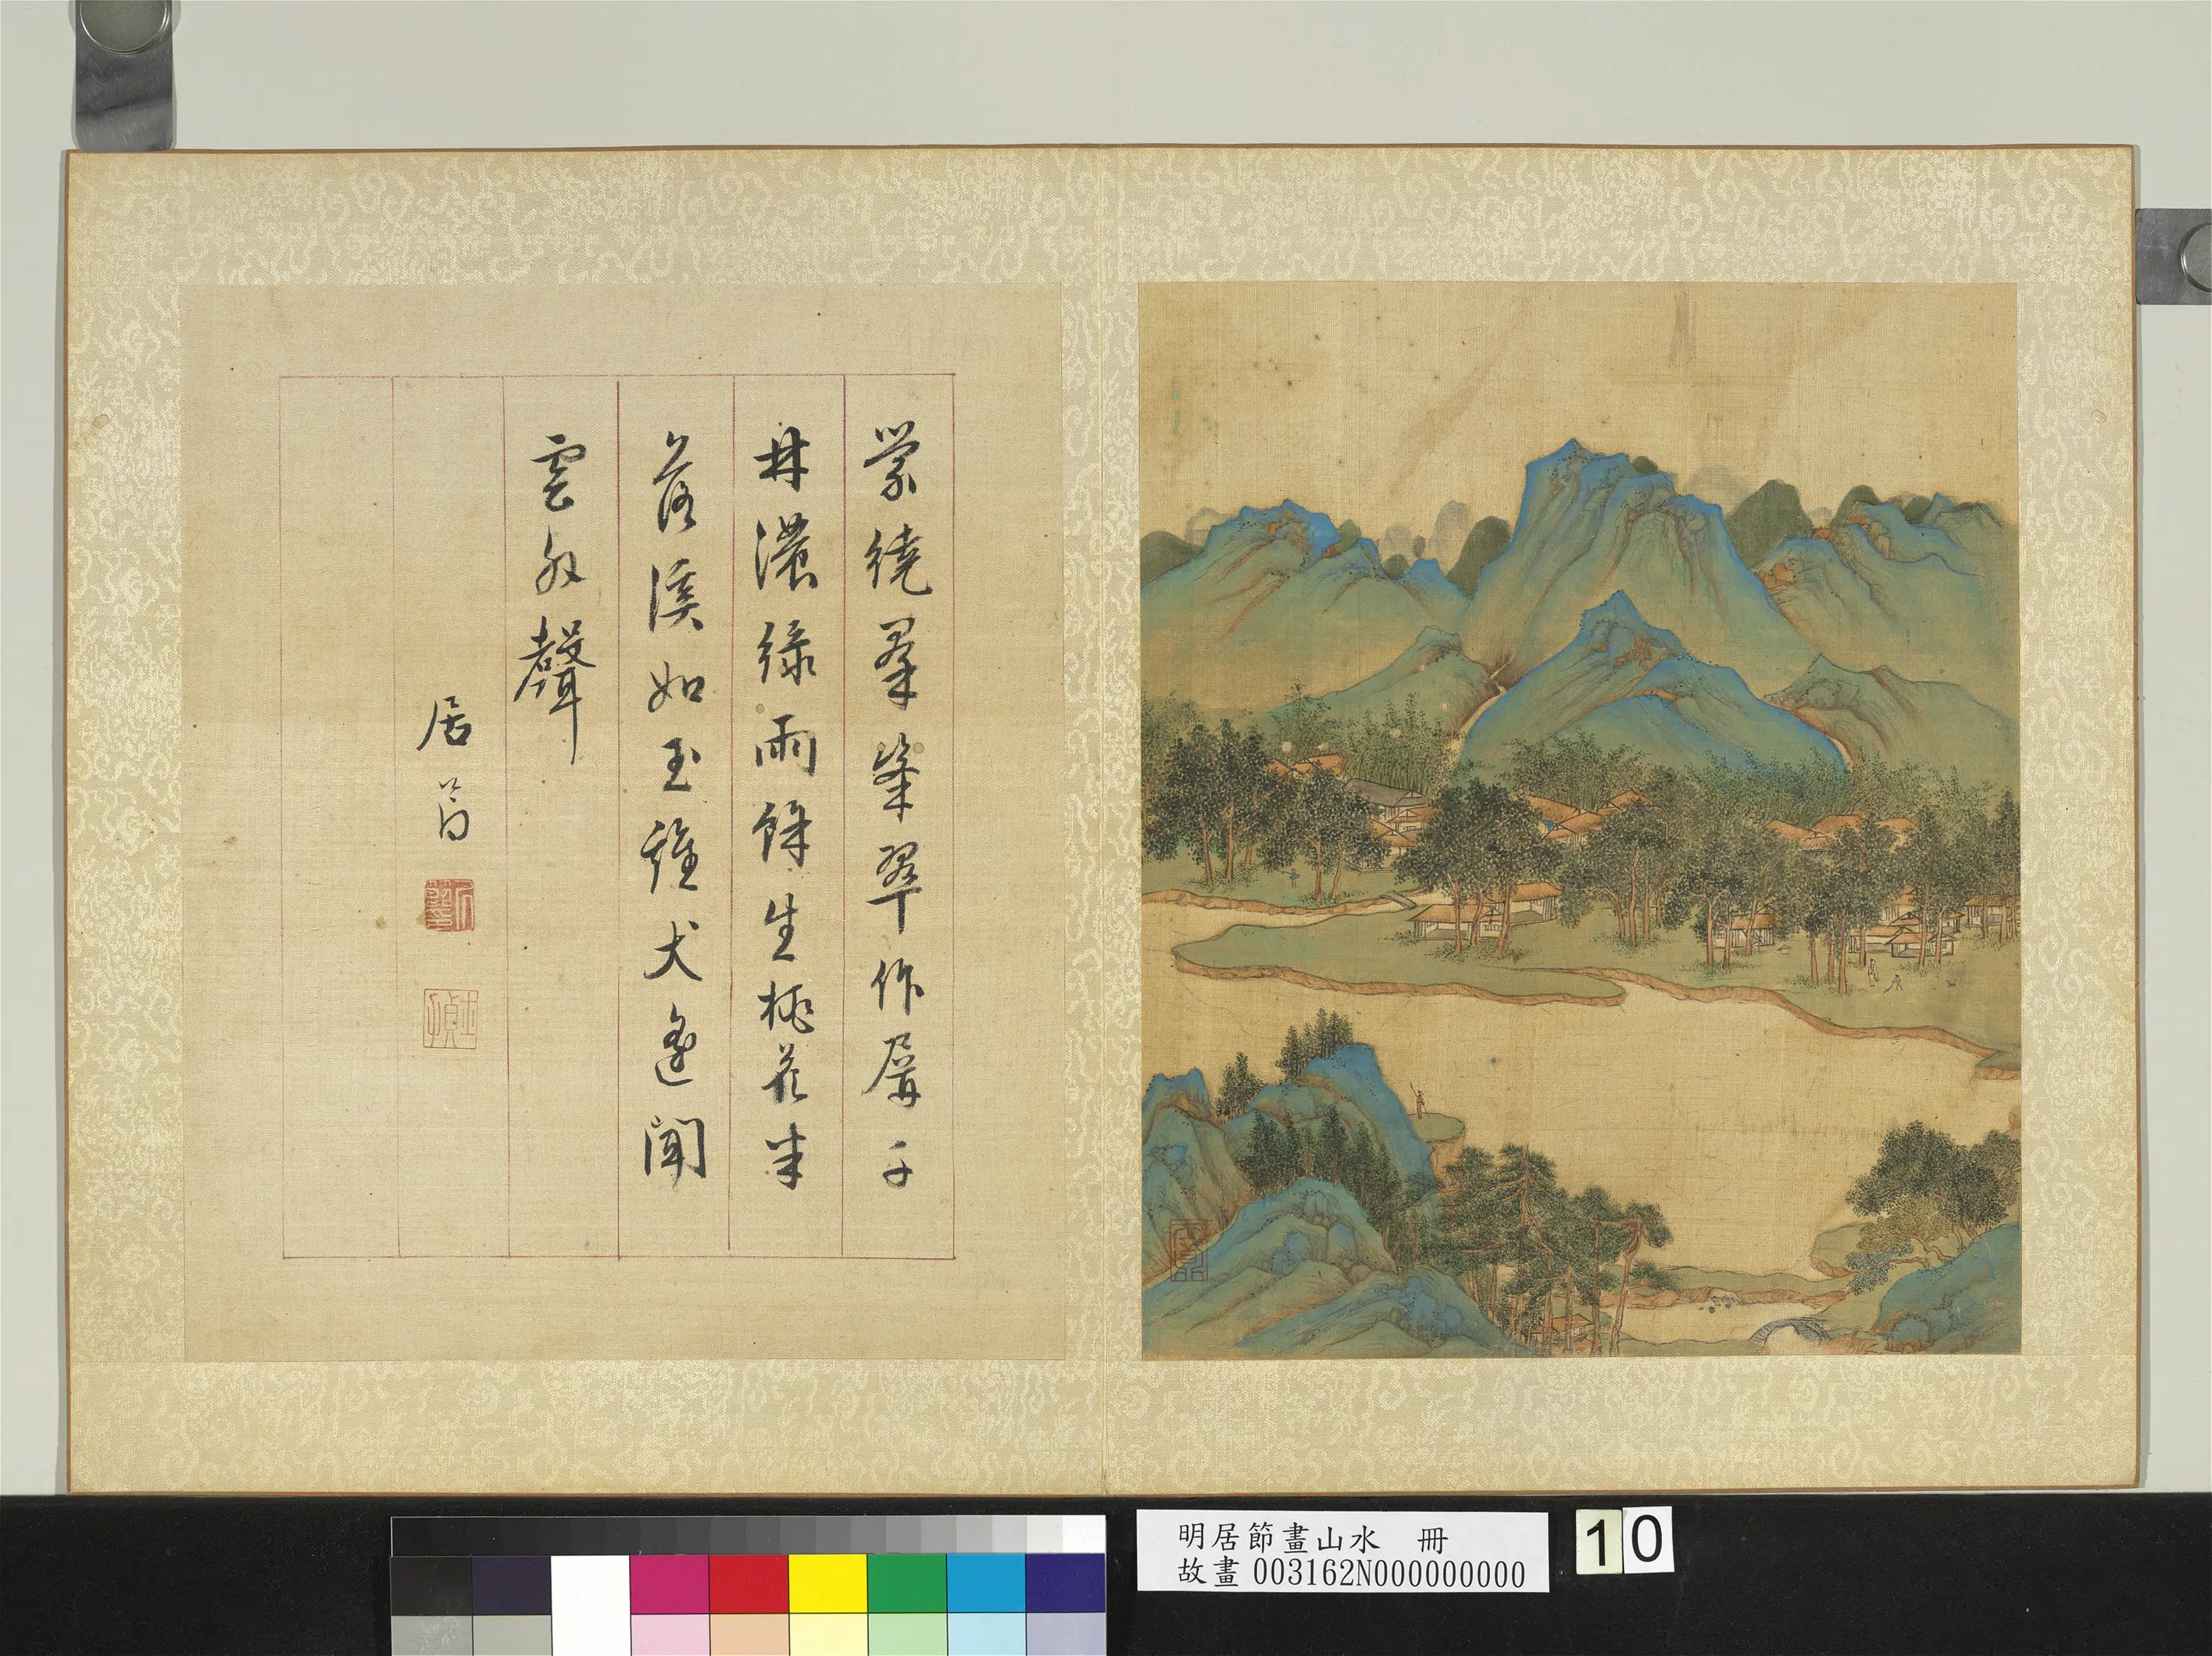 縈繞羣峯翠作屏千
林濃綠雨餘生桃花半
落溪如玉雞犬遙聞
雲外聲
居節
明居節畫山水 冊
故畫 003162N000000000
10